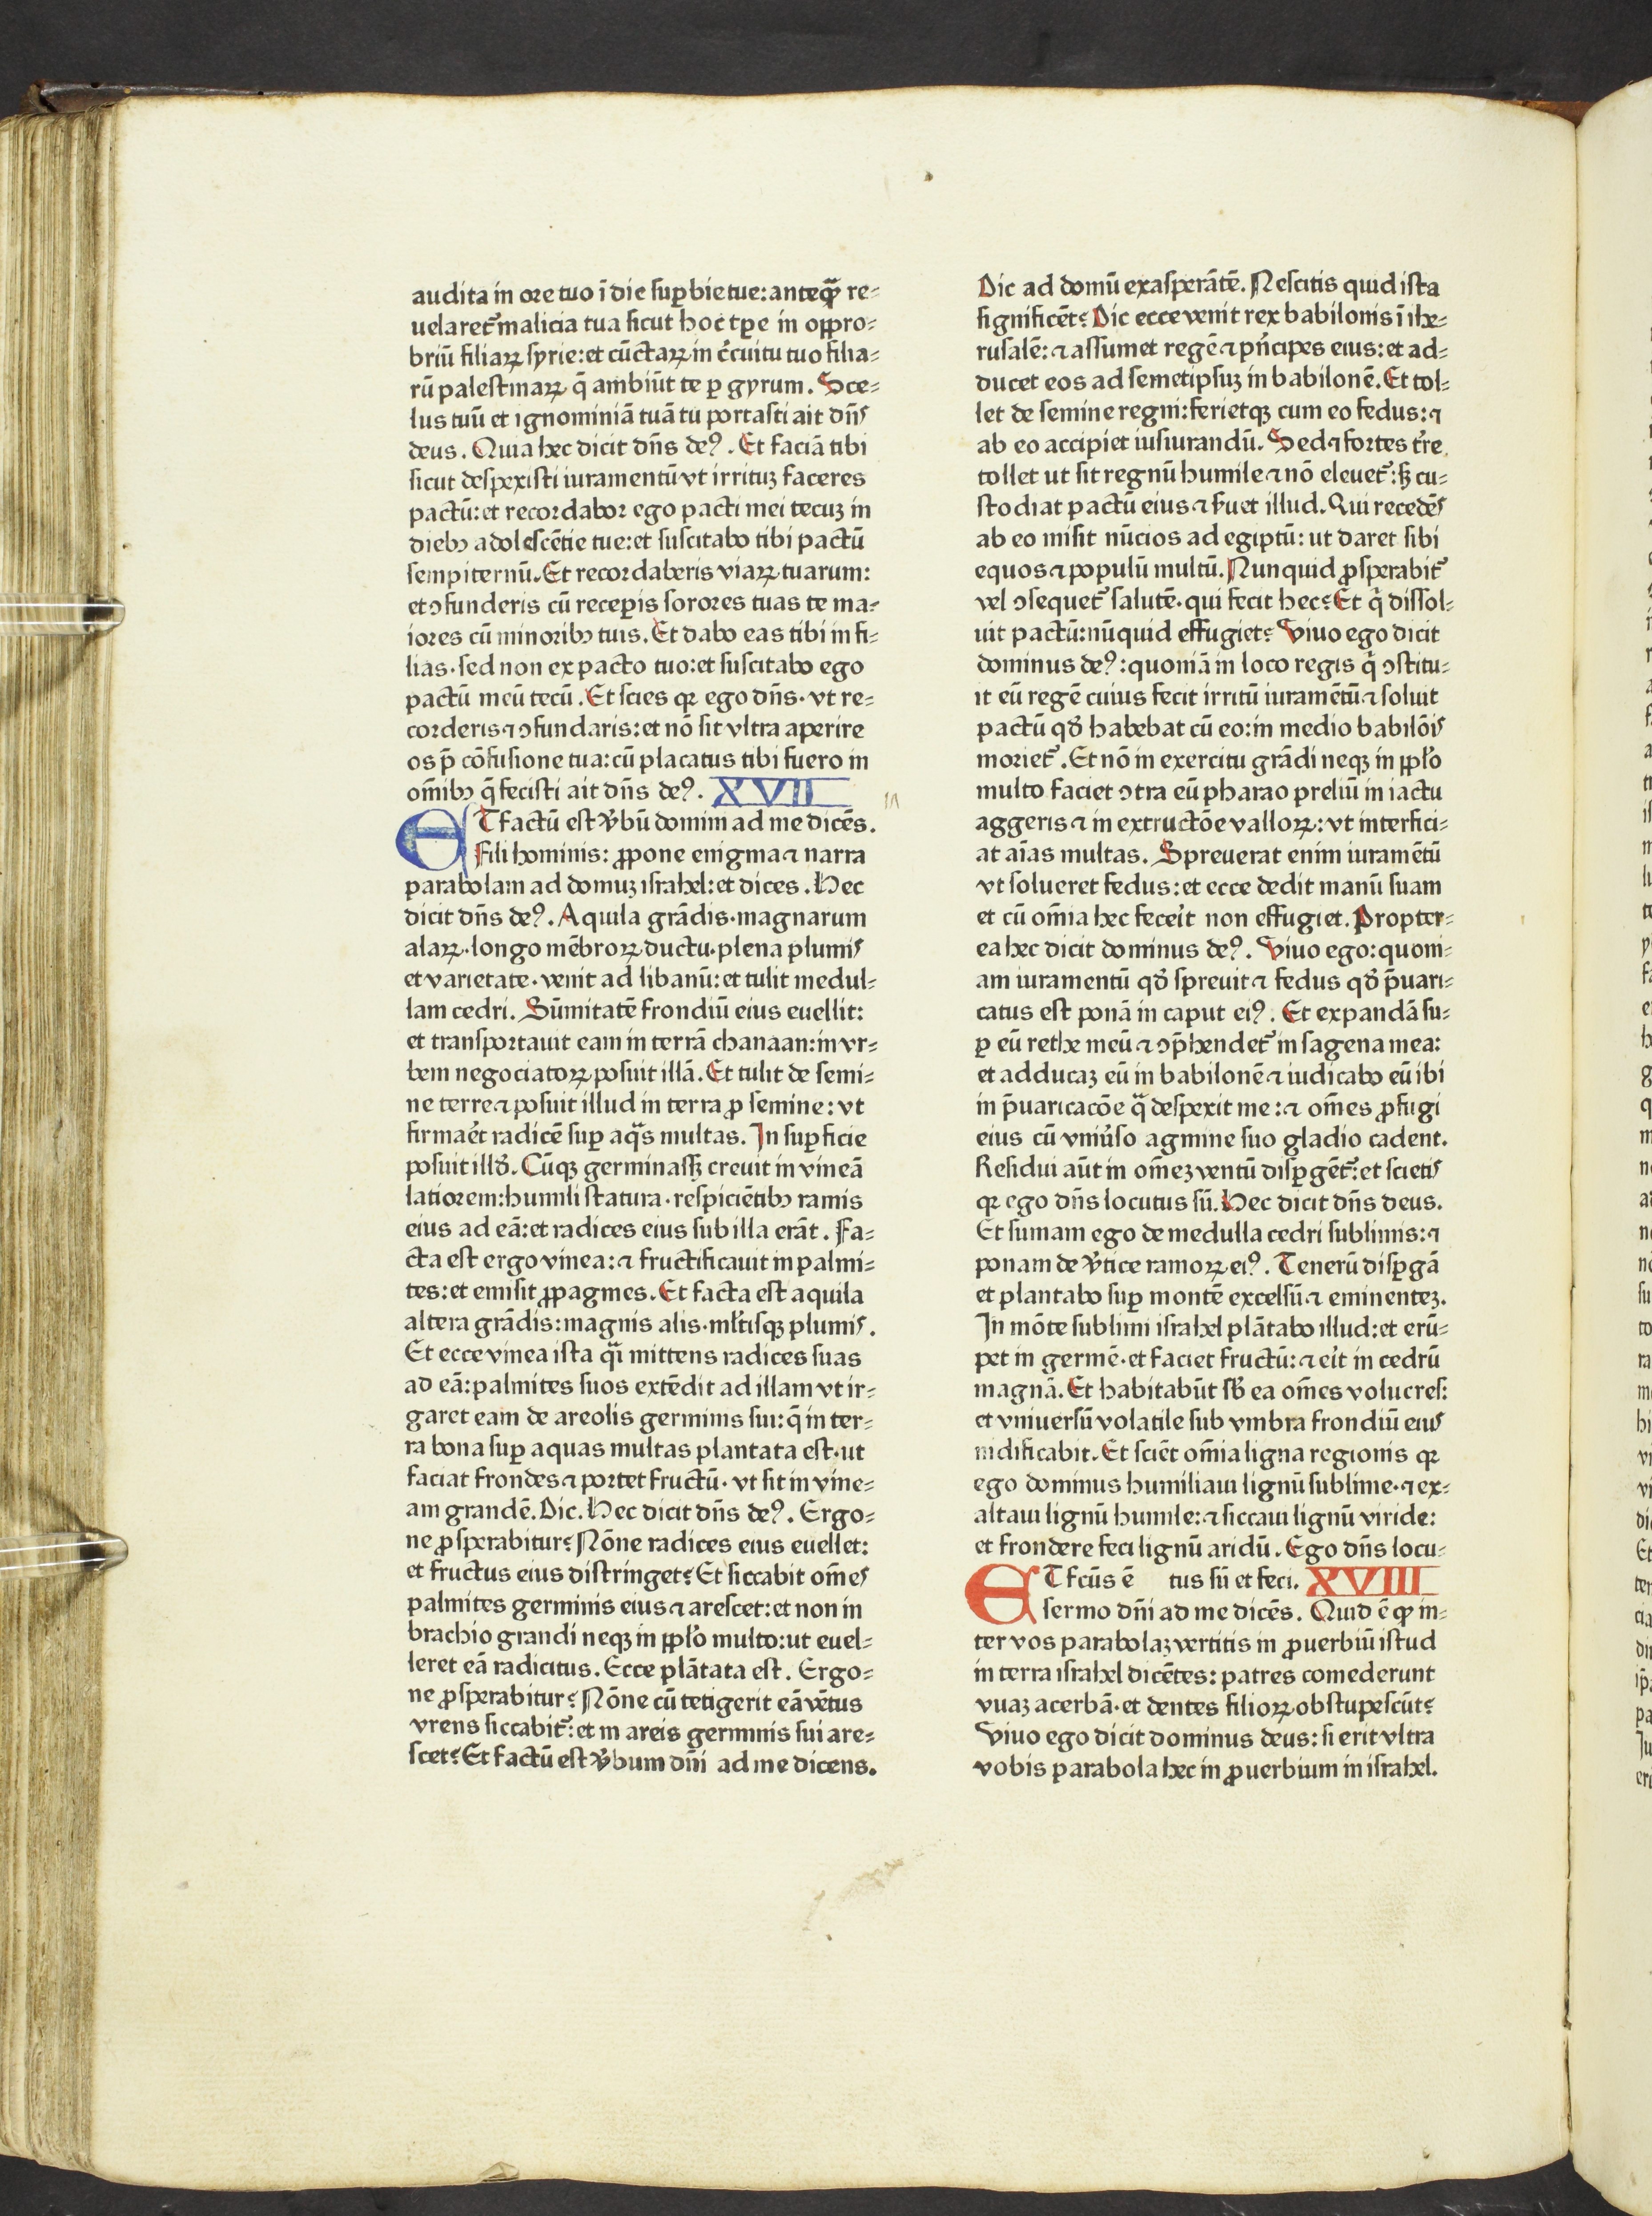 audita in ore tuo ī die suꝑbie tue: anteꝙ̄ re⸗
uelaret᷑ malicia tua sicut hoc tꝑe in oꝓpro⸗
briū filiaꝝ syrie: et cūctaꝝ in c̄cuitu tuo filia⸗
rū palestinaꝝ q̄ ambiūt te ꝑ gyrum. Sce⸗
lus tuū et ignominiā tuā tu portasti ait dn̄s
deus. Quia hec dicit dn̄s deꝰ. Et faciā tibi
sicut despexisti iuramentū vt irrituꝫ faceres
pactū: et recordabor ego pacti mei tecuꝫ in
diebꝫ adolescētie tue: et suscitabo tibi pactū
sempiternū. Et recordaberis viaꝝ tuarum:
et ↄfunderis cū receꝑis sorores tuas te ma⸗
iores cū minoribꝫ tuis. Et dabo eas tibi in fi⸗
lias· sed non ex pacto tuo: et suscitabo ego
pactū meū tecū. Et scies qꝛ ego dn̄s· vt re⸗
corderis ⁊ ↄfundaris: et nō sit vltra aperire
os p̄ cōfusione tua: cū placatus tibi fuero in
om̄ibꝫ q̄ fecisti ait dn̄s deꝰ. XVII
ET factū est v̄bū domini ad me dicēs.
Fili hominis: ꝓpone enigma ⁊ narra
parabolam ad domuꝫ israhel: et dices. Hec
dicit dn̄s deꝰ. Aquila grādis· magnarum
alaꝝ· longo mēbroꝝ ductu· plena plumis
et varietate· venit ad libanū: et tulit medul⸗
lam cedri. Sūmitatē frondiū eius euellit:
et transportauit eam in terrā chanaan: in vr⸗
bem negociatoꝝ posuit illā. Et tulit de semi⸗
ne terre ⁊ posuit illud in terra ꝓ semine: vt
firmaēt radicē suꝑ aq̄s multas. In suꝑficie
posuit illđ. Cūqꝫ germinassꝫ creuit in vineā
latiorem: humili statura· respiciētibꝫ ramis
eius ad eā: et radices eius sub illa erāt. Fa⸗
cta est ergo vinea: ⁊ fructificauit in palmi⸗
tes: et emisit ꝓpagines. Et facta est aquila
altera grādis: magnis alis· ml̄tisqꝫ plumis.
Et ecce vinea ista q̄i mittens radices suas
ad eā: palmites suos extēdit ad illam vt ir⸗
garet eam de areolis germinis sui: q̄ in ter⸗
ra bona suꝑ aquas multas plantata est· ut
faciat frondes ⁊ portet fructū· vt sit in vine⸗
am grandē. Dic. Hec dicit dn̄s deꝰ. Ergo⸗
ne ꝓsperabitur? Nōne radices eius euellet:
et fructus eius distringet? Et siccabit om̄es
palmites germinis eius ⁊ arescet: et non in
brachio grandi neqꝫ in ꝓpl̄o multo: ut euel⸗
leret eā radicitus. Ecce plātata est. Ergo⸗
ne ꝓsperabitur? Nōne cū tetigerit eā vētus
vrens siccabit᷑: et in areis germinis sui are⸗
scet? Et factū est v̄bum dn̄i ad me dicens.
Dic ad domū exasperātē. Nescitis quid ista
significēt? Dic ecce venit rex babilonis ī ihe⸗
rusalē: ⁊ assumet regē ⁊ pn̄cipes eius: et ad⸗
ducet eos ad semetipsuꝫ in babilonē. Et tol⸗
let de semine regni: ferietqꝫ cum eo fedus: ⁊
ab eo accipiet iusiurandū. Sed ⁊ fortes tr̄e
tollet ut sit regnū humile ⁊ nō eleuet᷑: sꝫ cu⸗
stodiat pactū eius ⁊ s̄uet illud. Qui recedēs
ab eo misit nūcios ad egiptū: ut daret sibi
equos ⁊ populū multū. Nunquid ꝓsperabit᷑
vel ↄsequet᷑ salutē· qui fecit hec? Et q̄ dissol⸗
uit pactū: nūquid effugiet? Viuo ego dicit
dominus deꝰ: quoniā in loco regis q̄ ↄstitu⸗
it eū regē cuius fecit irritū iuramētū ⁊ soluit
pactū qđ habebat cū eo: in medio babilōis
moriet᷑. Et nō in exercitu grādi neqꝫ in ꝓpl̄o
multo faciet ↄtra eū pharao preliū in iactu
aggeris ⁊ in extructōe valloꝝ: vt interfici⸗
at aīas multas. Spreuerat enim iuramētū
vt solueret fedus: et ecce dedit manū suam
et cū om̄ia hec fecēit non effugiet. Propter⸗
ea hec dicit dominus deꝰ. Viuo ego: quoni⸗
am iuramentū qđ spreuit ⁊ fedus qđ p̄uari⸗
catus est ponā in caput eiꝰ. Et expandā su⸗
ꝑ eū rethe meū ⁊ ↄp̄hendet᷑ in sagena mea:
et adducaꝫ eū in babilonē ⁊ iudicabo eū ibi
in p̄uaricacōe q̄ despexit me: ⁊ om̄es ꝓfugi
eius cū vniūso agmine suo gladio cadent.
Residui aūt in om̄eꝫ ventū disꝑgēt᷑: et scietis
qꝛ ego dn̄s locutus sū. Hec dicit dn̄s deus.
Et sumam ego de medulla cedri sublimis: ⁊
ponam de v̄tice ramoꝝ eiꝰ. Tenerū disꝑgā
et plantabo suꝑ montē excelsū ⁊ eminenteꝫ.
In mōte sublimi israhel plātabo illud: et erū⸗
pet in germē· et faciet fructū: ⁊ eīt in cedrū
magnā. Et habitabūt sb̄ ea om̄es volucres:
et vniuersū volatile sub vmbra frondiū eius
nidificabit. Et sciēt om̄ia ligna regionis qꝛ
ego dominus humiliaui lignū sublime· ⁊ ex⸗
altaui lignū humile: ⁊ siccaui lignū viride:
et frondere feci lignū aridū. Ego dn̄s locu⸗
ET fcūs ē tus sū et feci. XVIII
sermo dn̄i ad me dicēs. Quid ē ꝙ in⸗
ter vos parabolaꝫ vertitis in ꝓuerbiū istud
in terra israhel dicētes: patres comederunt
vuaꝫ acerbā· et dentes filioꝝ obstupescūt?
Viuo ego dicit dominus deus: si erit vltra
vobis parabola hec in ꝓuerbium in israhel.